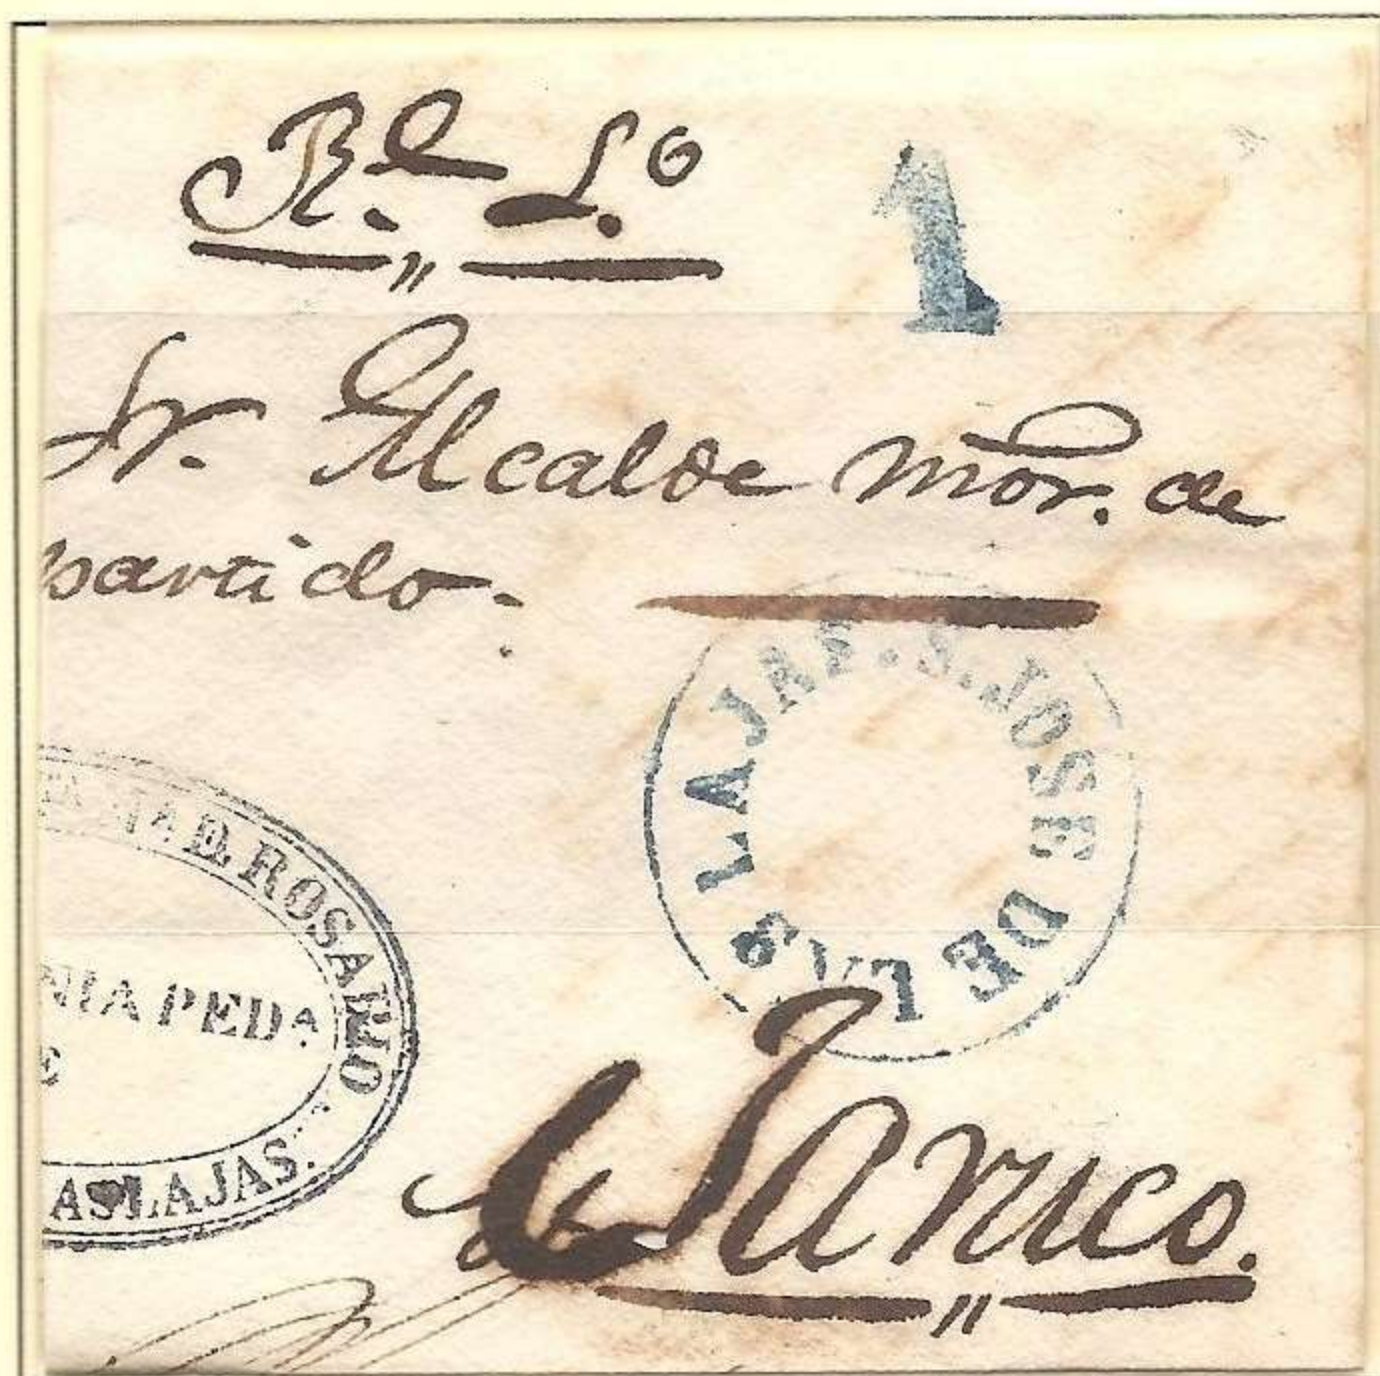 Rl. S.o
1
Sr. Alcalde mor. de
partido.
S. JOSE DE LAS LAJAS.
Ma. D. ROSARIO
NIA PEDa.
E
AS LAJAS.
Jaruco.